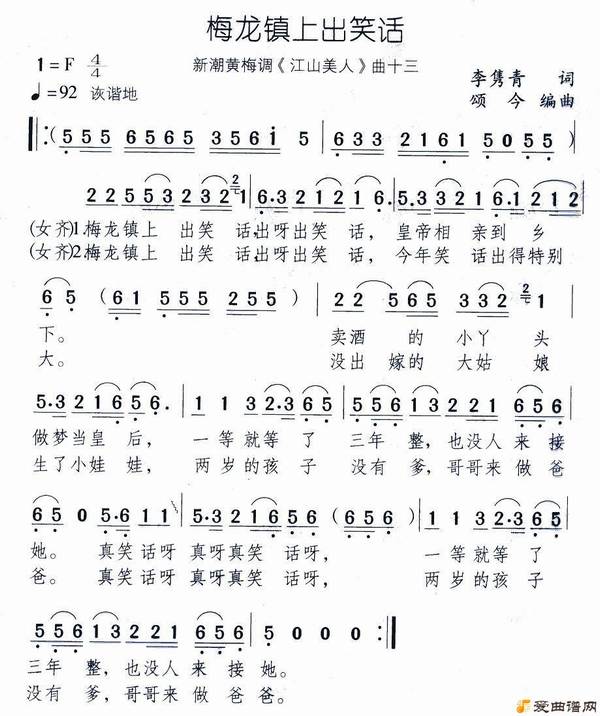 梅龙镇上出笑话
1=F 4/4 新潮黄梅调《江山美人》曲十三 李隽青 词
♩=92 诙谐地 颂今 编曲
‖:(555 565 3561 5 | 6 33 2161 5055)|
2255323 2 1|6·32121 6·|5·323216·1 212|
(女齐)1.梅龙镇上 出笑 话,出呀出笑 话, 皇帝相 亲到 乡
(女齐)2.梅龙镇上 出笑 话,出呀出笑 话, 今年笑 话出得特别
6 5 (61 555 255)|22 565 332 2 1|
下。 卖酒 的 小丫 头
大。 没出 嫁的 大姑 娘
5·3 2165 6·|11 32·3 65|556132216 56|
做梦当皇 后, 一等就等 了 三年 整,也没人 来 接
生了小娃 娃, 两岁的孩 子 没有 爹,哥哥来 做 爸
65 0 5·6 11|5·3 2 1656 (656)|11 32·3 65|
她。 真笑 话呀 真呀真笑 话呀, 一等就等 了
爸。 真笑 话呀 真呀真笑 话呀, 两岁的孩 子
556 13 221 6 565|5 0 0 0:‖
三年 整,也没人 来 接她。
没有 爹,哥哥来 做 爸爸。
爱曲谱网